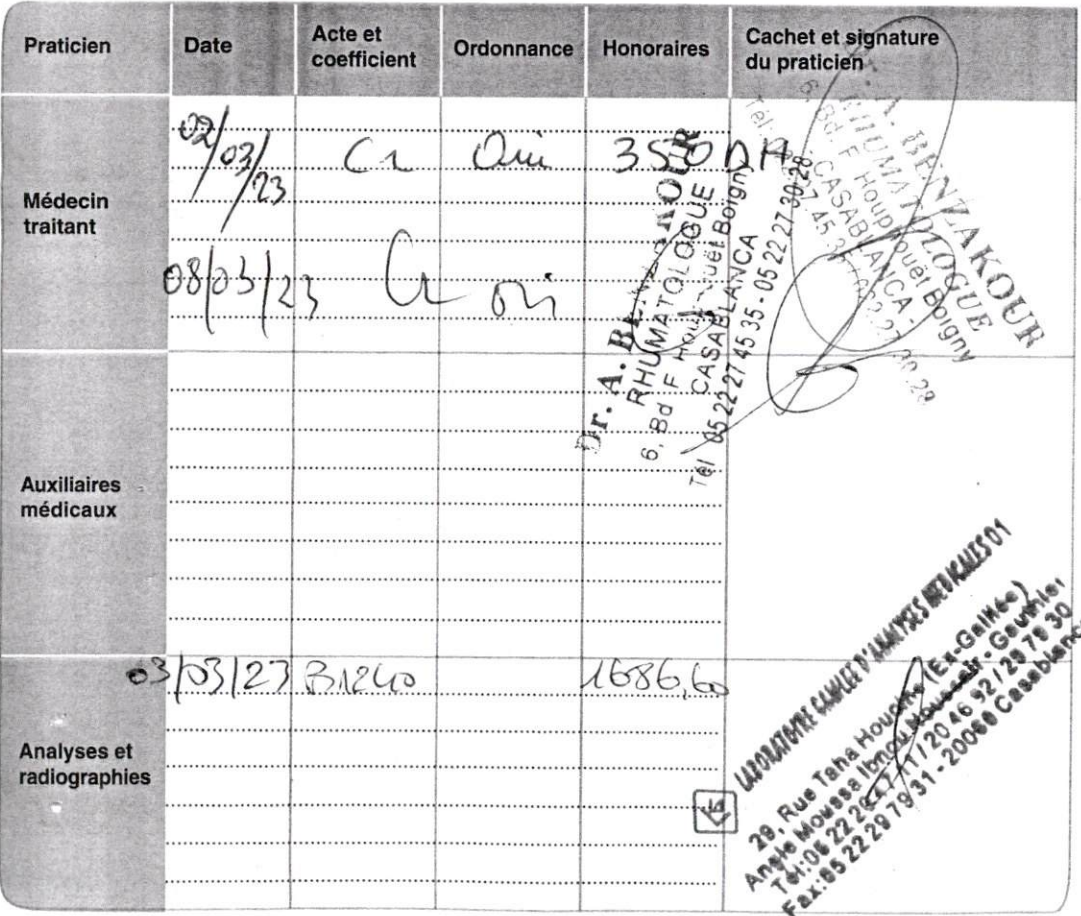 Praticien Date Acte et coefficient Ordonnance Honoraires Cachet et signature du praticien
Médecin traitant
02/03/23 C2 Oui 350 DH
08/03/23 C2 oui
Dr. A. BENZAKOUR
RHUMATOLOGUE
6, Bd F Houphouët Boigny
CASABLANCA
Tél 05 22 27 45 35 - 05 22 27 30 28
Dr. A. BENZAKOUR
RHUMATOLOGUE
6, Bd F Houphouët Boigny
CASABLANCA -
Auxiliaires médicaux
Analyses et radiographies
03/03/23 B1240 1686,60
LABORATOIRE D'ANALYSES MEDICALES 01
29, Rue Taha Houcine (Ex-Galilée)
Angle Moussa Ibnou Noussair - Gauthier
Tél: 05 22 20 46 92 / 29 79 30
Fax: 05 22 29 79 31 - 20060 Casablanca